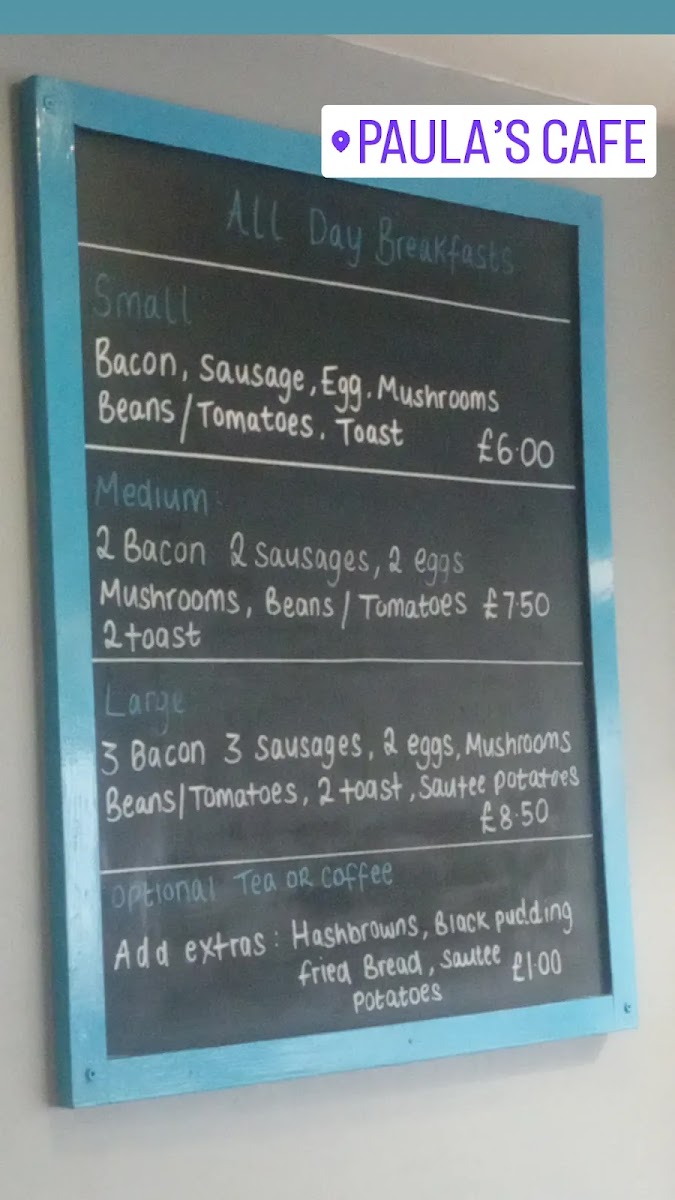 PAULA'S CAFE
All Day Breakfasts
Small
Bacon, Sausage, Egg. Mushrooms
Beans/Tomatoes. Toast
£6.00
Medium
2 Bacon 2 sausages, 2 eggs
Mushrooms, Beans/Tomatoes £7.50
2 toast
Large
3 Bacon 3 Sausages, 2 eggs, Mushrooms
Beans/Tomatoes, 2 toast, Sautee potatoes
£8.50
optional Tea OR coffee
Add extras: Hashbrowns, Black pudding
fried Bread, Sautee £1.00
potatoes